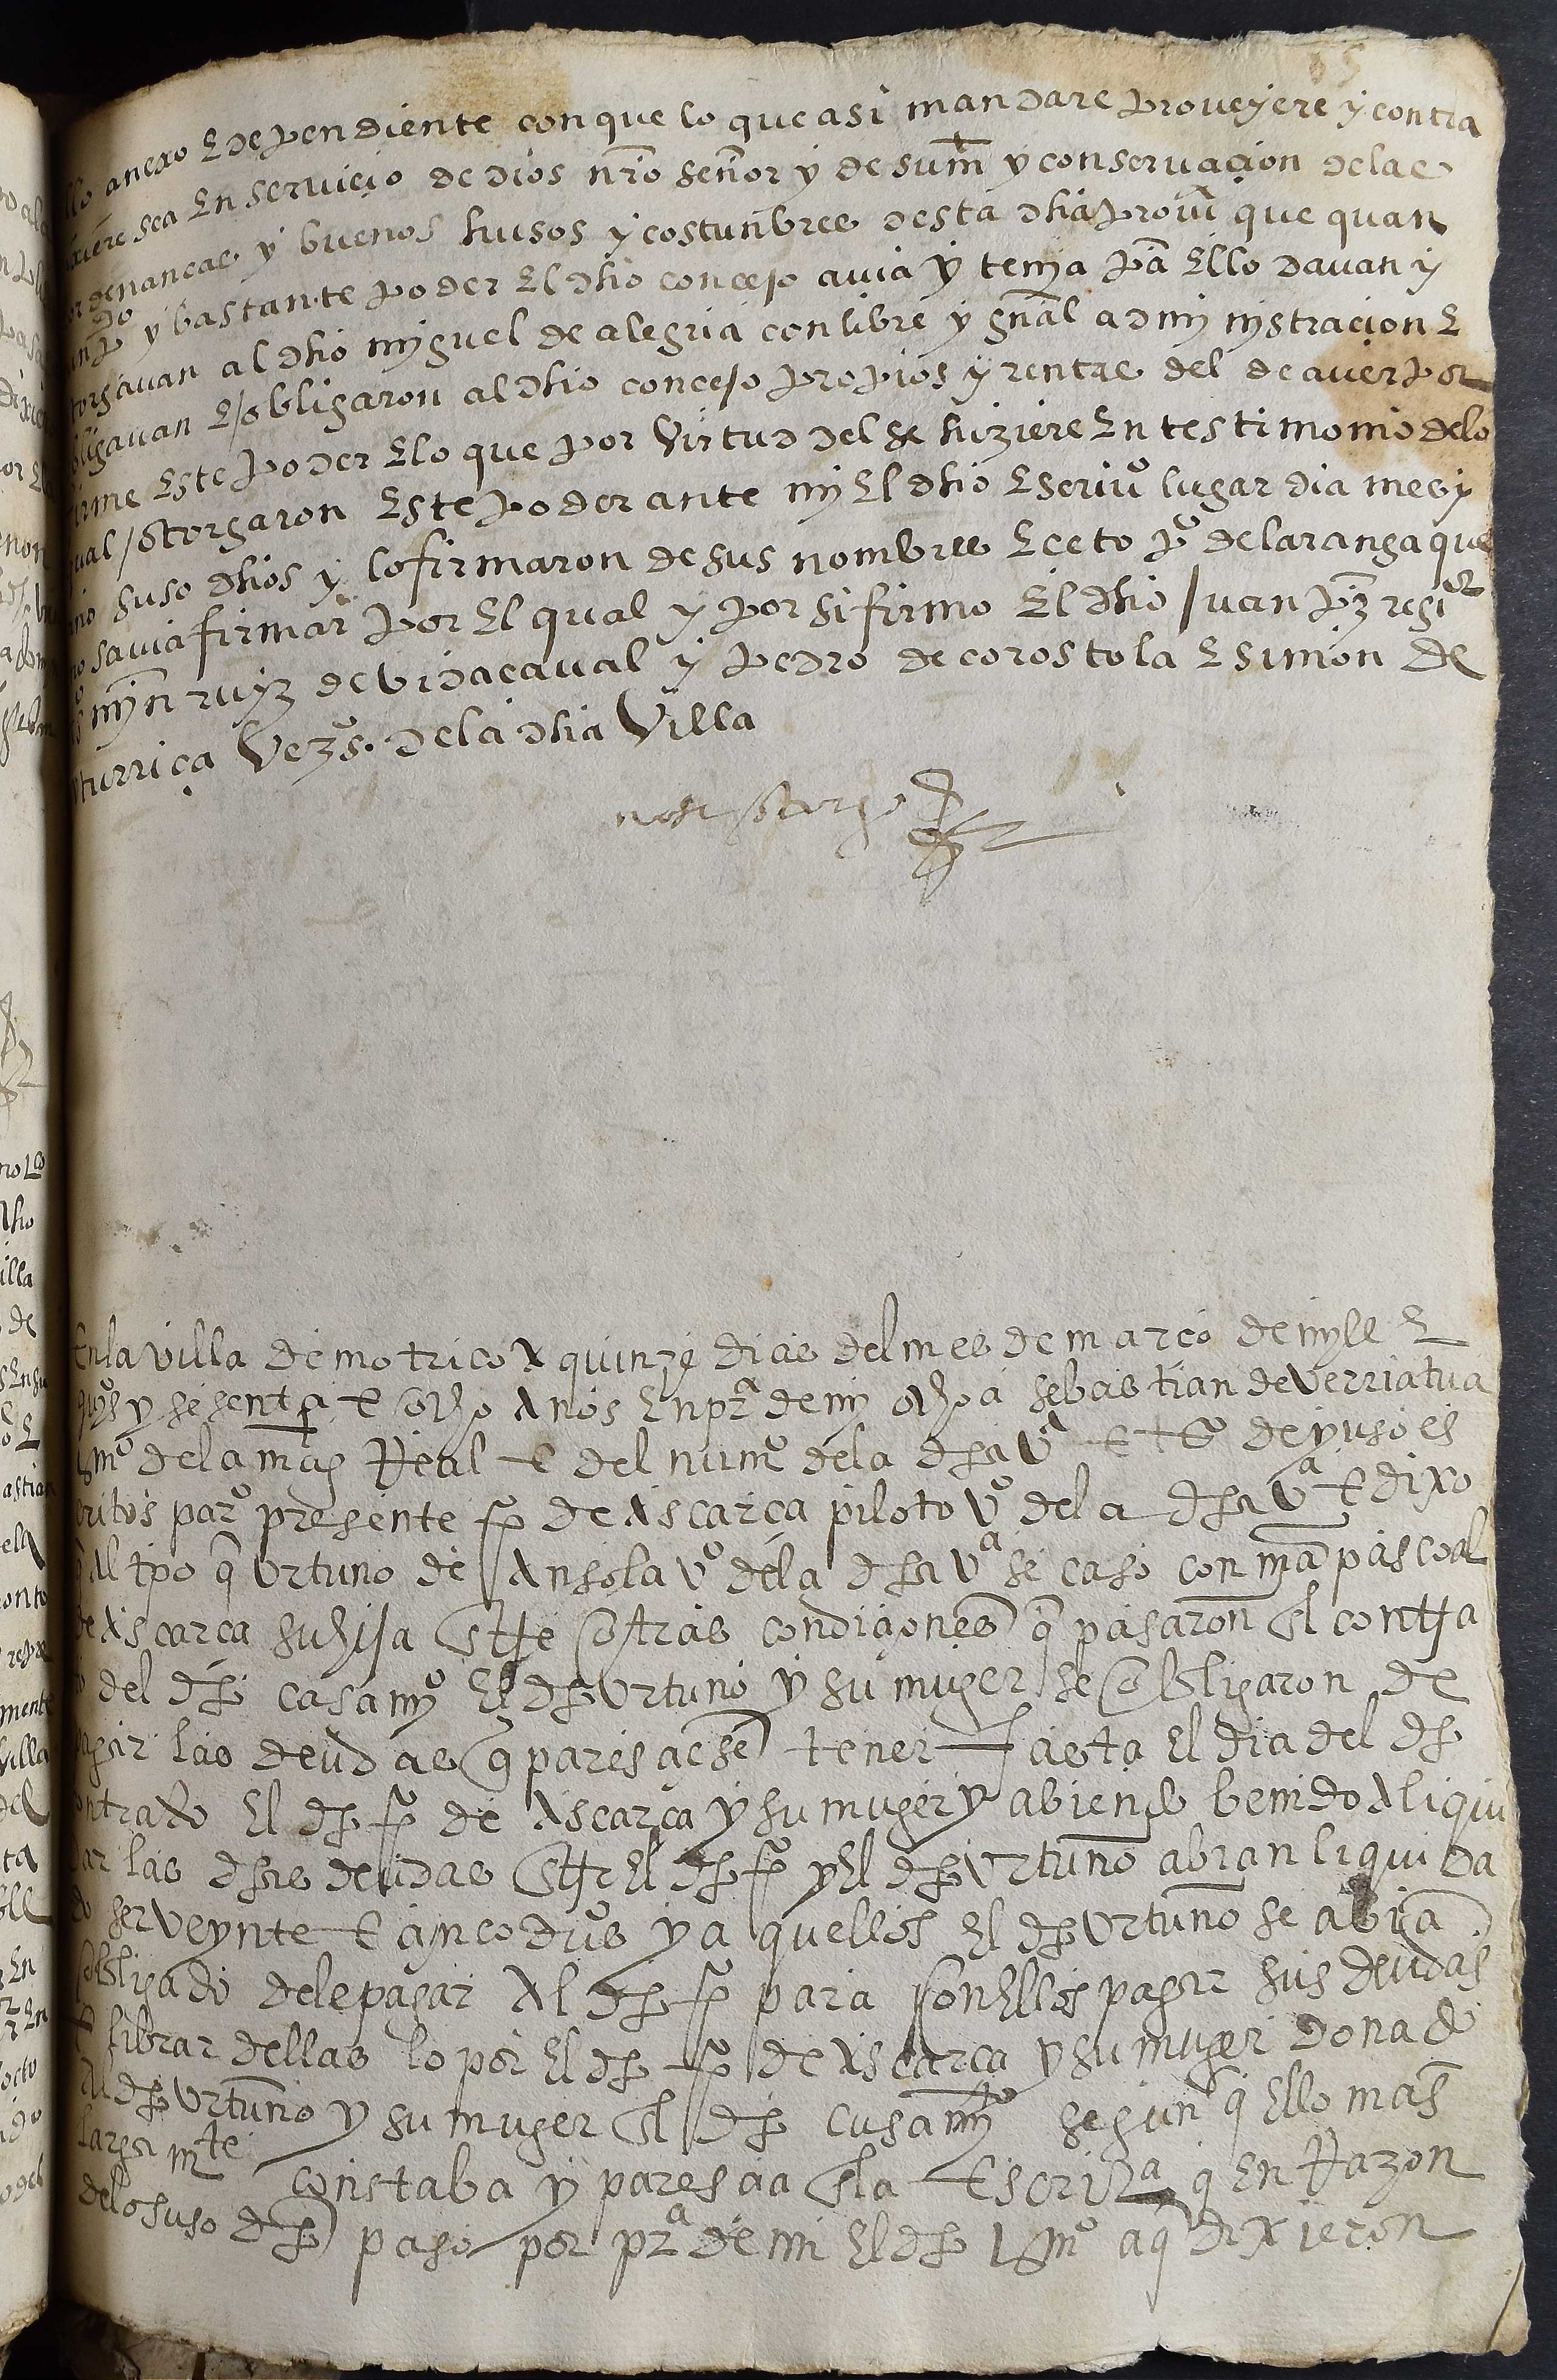 65
llo anexo E dependiente con que lo que asi mandare proveyere y contra
xiere sea En servicio de dios nro señor y de sum y conservaçion delas
ordenanças y buenos husos y costunbres desta dha prouª que quan
y bastante poder El dho concejo avia y tenia pa Ello davan y
torgavan al dho myguel de alegria con libre y gnal admynystraçion E
obligavan E/obligaron al dho concejo propios y rentas del de aver por
firme Este poder E lo que por virtud del se hiziere En testimonio delo
qual/otorgaron Este poder ante my El dho Escriuº lugar dia mes y
año suso dhos y lo firmaron de sus nombres Eceto pº de laranga que
no savia firmar por El qual y por si firmo El dho Juan pz regior
myn ruyz de vidaçaval y pedro de corostola E simon de
yturriça vezºs. de la dha villa
no se otorgo
En la villa de motrico A quinze dias del mes de março de myll E
quisº y sesenta E ocho Años En przª de my ochoa sebastian de verriatua
smº dela mag Real E del numº dela dha vª E tº de yuso es
critos parº presente jº de Ascarça piloto vº dela dha vª E dixo
q Al tpo q Urtuño de Ansola vº dela dha vª se caso con mª pascoal
de Ascarça su hija Entre otras condiçiones q pasaron En El contra
to del dho casamyº El dho Urtuño y su muger se obligaron de
pagar las deudas q paresçiese tener fasta El dia del dho
contrato El dho jº de Ascarça y su muger y abiendo benido A liqui
dar las dhas deudas Entre El dho jº y El dho Urtuño abian liquida
do ser veynte E çinco dusº y aquellos El dho Urtuño se abia
obligado de le pagar Al dho jº para con Ellos pagar sus deudas
E librar dellas lo por El dho jº de Ascarça y su muger donado
Al dho Urtuño y su muger En El dho casamyº segun q Ello mas
largamte constaba y paresçia En la Escripª q En Razon
delo suso dho paso por przª de mi El dho smº a q dixieron